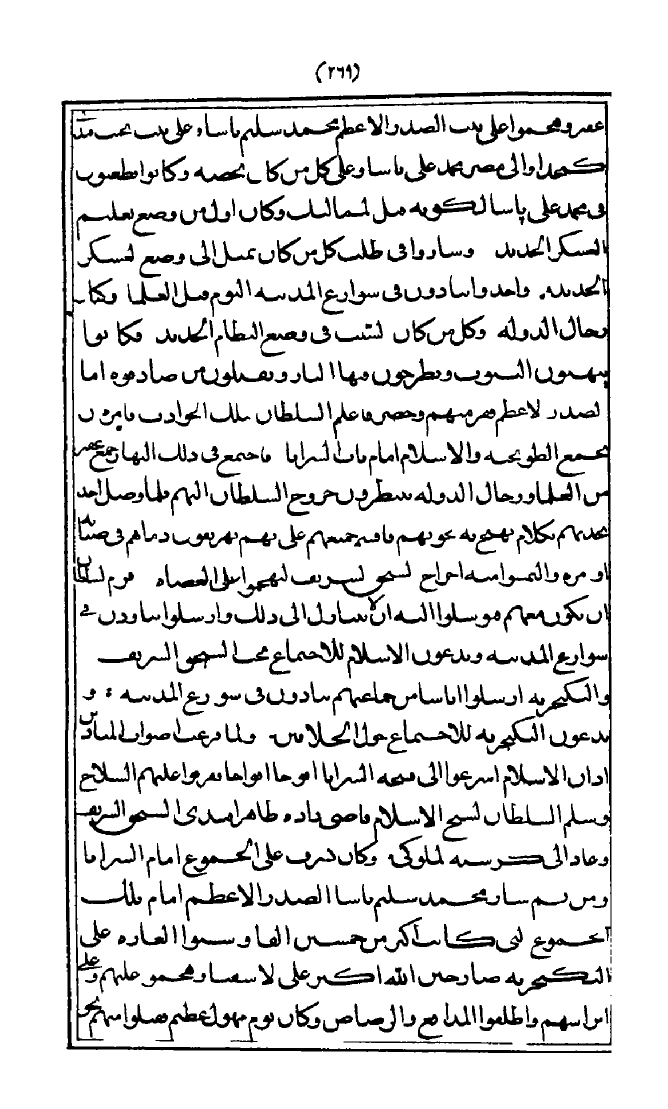 (٢٦٩)
وهجموا على بيت الصدر الاعظم محمد سليم باشا وعلى بيت نجيب
كتخدا والي مصر محمد علي باشا وعلى كل من كان يخصه وكانوا يطعنون
في محمد علي پاشا لكونه مثل لمماليك وكان اول من وضع تعليم
العسكر الجديد وساروا في طلب كل من كان يميل الى وضع لعسكر
الجديد. واخدوا ينادون في شوارع المدينه اليوم قتل العلما وكتاب
رجال الدوله وكل من كان لسبب في وضع النظام الجديد فكانوا
ينهبون البيوت ويطرحون فيها النار ويقتلون من صادفوه اما
لصدر لاعظم فهرب منهم وحضر فاعلم السلطان بتلك الحوادث فامر ان
يجمع الطوبجيه والاسلام امام باب السرايا فاجتمع في ذلك النهار جمع غفير
من العلما ورجال الدوله ينتظرون خروج السلطان اليهم فلما وصل اخد
يحدثهم بكلام يهيج به نخوتهم فاقسم جميعهم على انهم يهرقون دماهم في
اوامره والتمسوا منه اخراج لسنجق لشريف ليهجموا على العصاه فرام لسلطان
ان يكون معهم فتوسلوا اليه ان لا يتنازل الى ذلك وارسلوا ينادون في
شوارع المدينه ويدعون الاسلام للاجتماع تحت السنجق الشريف
والينكجريه ارسلوا اناسا من جماعتهم ينادون في شورع المدينه و
يدعون الينكجريه للاجتماع حول الحلل. ولما قرعت اصوات المنادين
اذان الاسلام اسرعوا الى فسحة السرايا افواجا افواجا ففرقوا عليهم السلاح
وسلم السلطان لشيخ الاسلام قاضي زاده طاهر افندي السنجق الشريف
وعاد الى كرسيه لملوكي. وكان يشرف على الجموع امام السرايا
ومن ثم سار محمد سليم باشا الصدر الاعظم امام تلك
الجموع لتي كانت أكثر من خمسين الفا وشنوا الغاره على
الينكجريه صارخين الله اكبر على لاشقيا وهجمو عليهم وعلى
اغراسهم واطلقوا المدافع والرصاص وكان يوم مهول عظيم فقتلوا منهم نحو